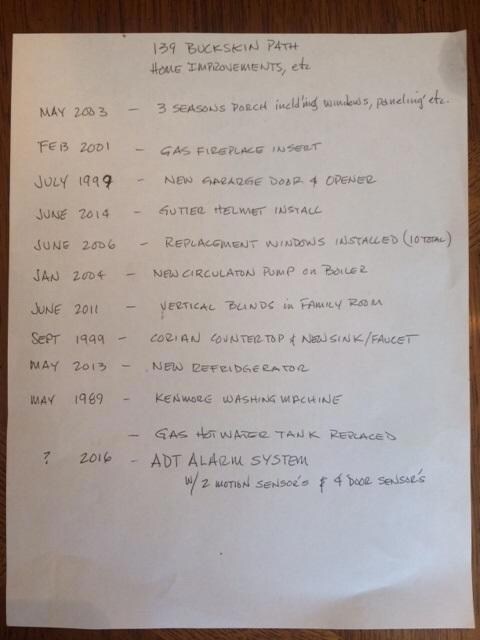 139 BUCKSKIN PATH
HOME IMPROVEMENTS, etc
MAY 2003 — 3 SEASONS PORCH incld'ing windows, paneling etc.
FEB 2001 — GAS FIREPLACE INSERT
JULY 1999 — NEW GARARGE DOOR & OPENER
JUNE 2014 — GUTTER HELMET INSTALL
JUNE 2006 — REPLACEMENT WINDOWS INSTALLED (10 TOTAL)
JAN 2004 — NEW CIRCULATON PUMP on BOILER
JUNE 2011 — VERTICAL BLINDS in FAMILY ROOM
SEPT 1999 — CORIAN COUNTERTOP & NEW SINK/FAUCET
MAY 2013 — NEW REFRIDGERATOR
MAY 1989 — KENMORE WASHING MACHINE
— GAS HOT WATER TANK REPLACED
? 2016 — ADT ALARM SYSTEM
W/ 2 MOTION SENSOR'S & 4 DOOR SENSOR'S